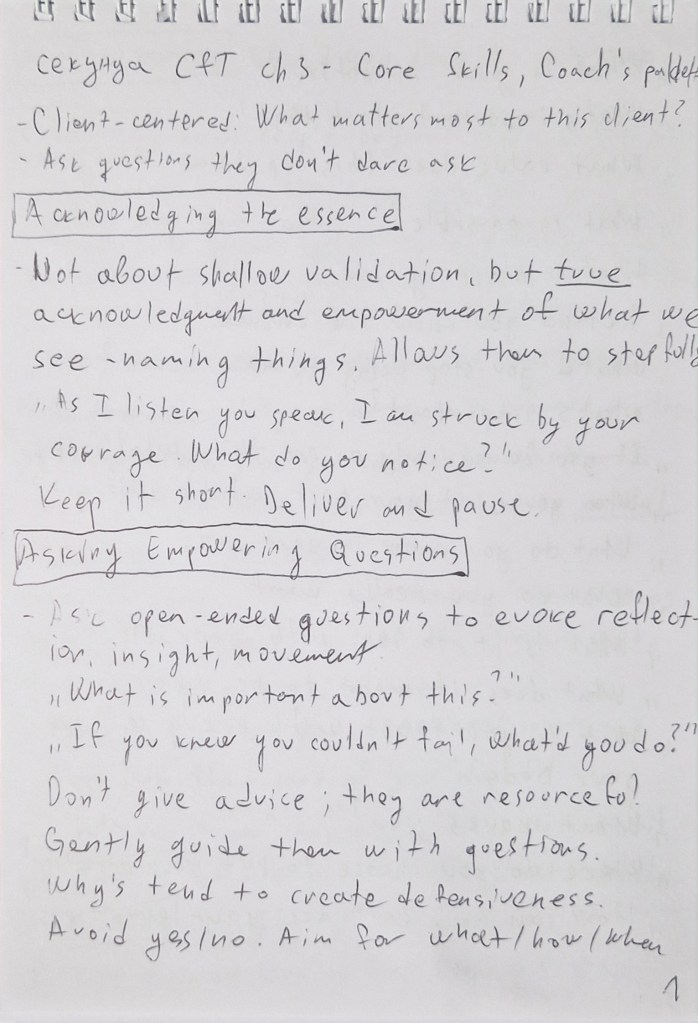 секунда CfT ch 3 - Core Skills, Coach's
- Client-centered: What matters most to this client?
- Ask questions they don't dare ask
Acknowledging the essence
- Not about shallow validation, but true
acknowledgment and empowerment of what we
see - naming things. Allows them to step fully
„As I listen you speak, I am struck by your
courage. What do you notice?"
Keep it short. Deliver and pause.
Asking Empowering Questions
- Ask open-ended questions to evoke reflect-
ion, insight, movement
„What is important about this?"
„If you knew you couldn't fail, what'd you do?"
Don't give advice; they are resourceful
Gently guide them with questions.
Why's tend to create defensiveness.
Avoid yes/no. Aim for what/how/when
1